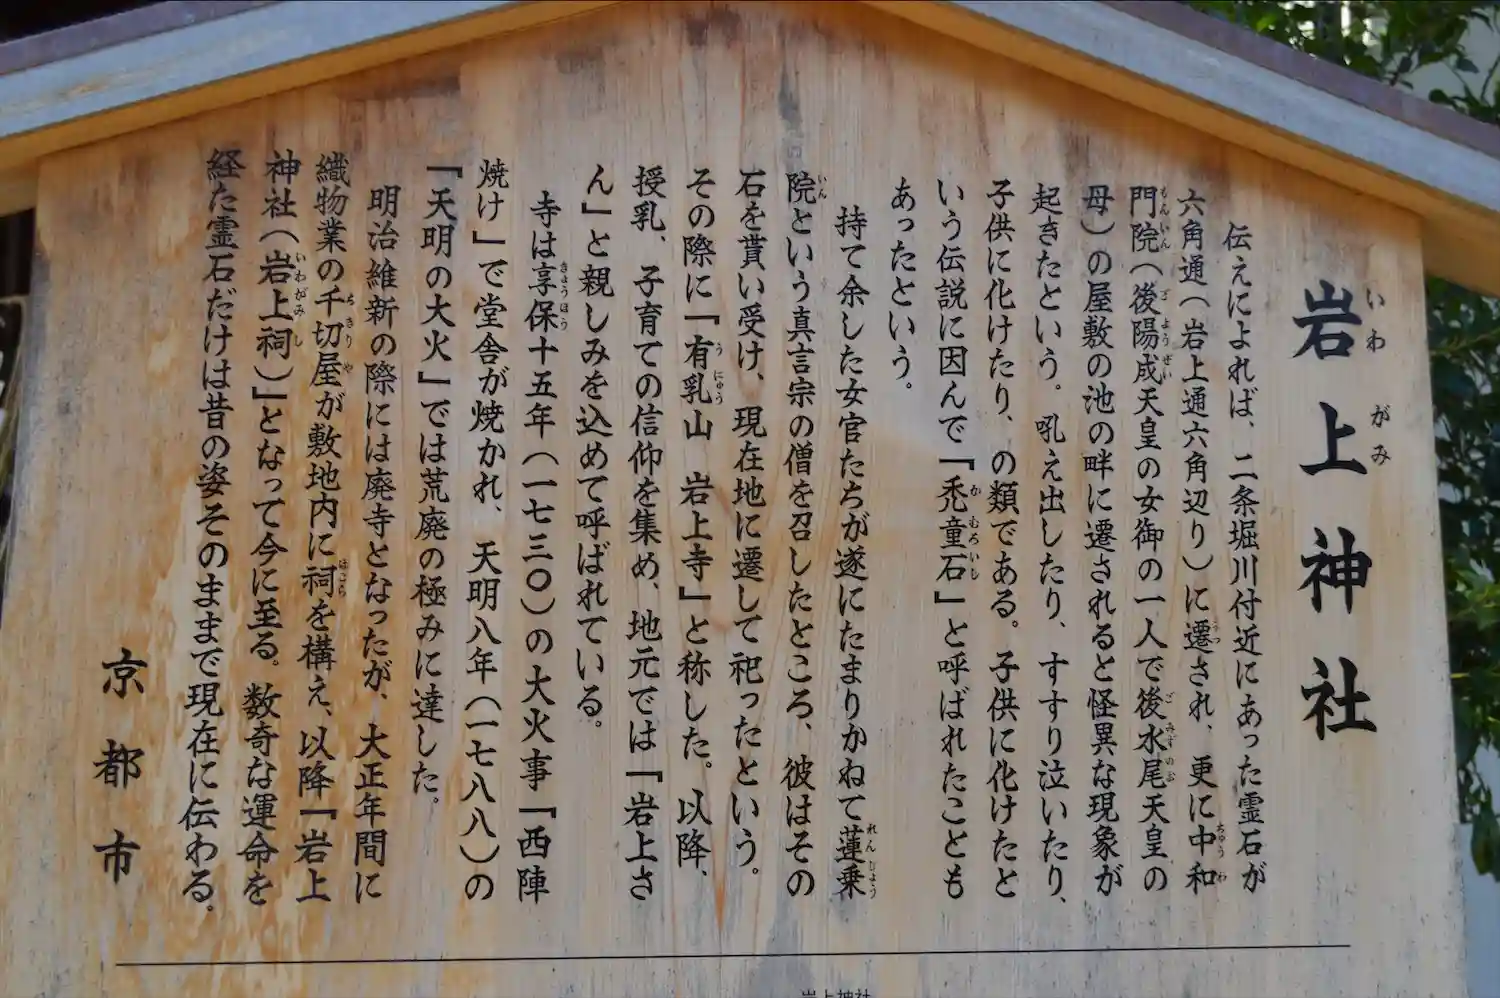 岩上神社
伝えによれば、二条堀川付近にあった霊石が
六角通（岩上通六角辺り）に遷され、更に中和
門院（後陽成天皇の女御の一人で後水尾天皇の
母）の屋敷の池の畔に遷されると怪異な現象が
起きたという。吼え出したり、すすり泣いたり、
子供に化けたり、の類である。子供に化けたと
いう伝説に因んで「禿童石」と呼ばれたことも
あったという。
持て余した女官たちが遂にたまりかねて蓮乗
院という真言宗の僧を召したところ、彼はその
石を貰い受け、現在地に遷して祀ったという。
その際に「有乳山 岩上寺」と称した。以降、
授乳、子育ての信仰を集め、地元では「岩上さ
ん」と親しみを込めて呼ばれている。
寺は享保十五年（一七三〇）の大火事「西陣
焼け」で堂舎が焼かれ、天明八年（一七八八）の
「天明の大火」では荒廃の極みに達した。
明治維新の際には廃寺となったが、大正年間に
織物業の千切屋が敷地内に祠を構え、以降「岩上
神社（岩上祠）」となって今に至る。数奇な運命を
経た霊石だけは昔の姿そのままで現在に伝わる。
京都市
岩上神社